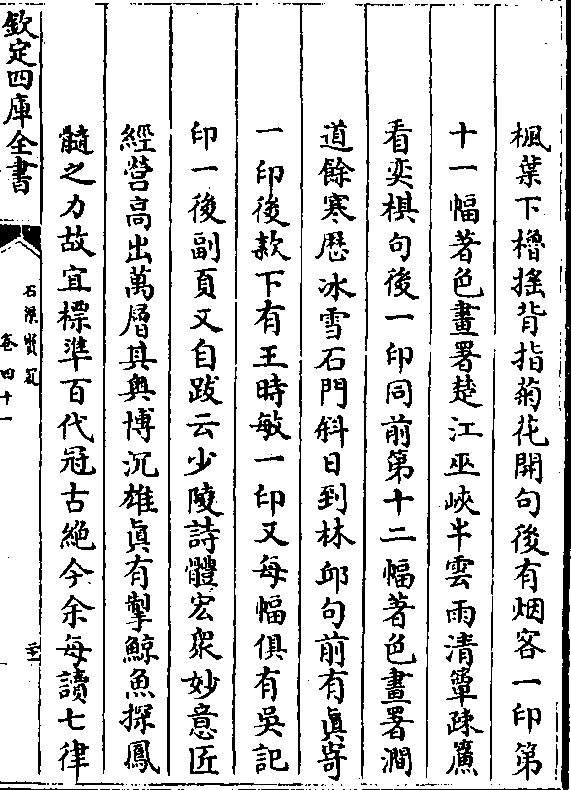 楓葉下櫓揺背指菊花開句後有烟客一印第
十一幅著色畫署楚江巫峽半雲雨清簟疎簾
看奕棋句後一印同前第十二幅著色畫署澗
道餘寒歴冰雪石門斜日到林邱句前有真寄
一印後款下有王時敏一印又每幅俱有吳記
印一後副頁又自跋云少陵詩體宏衆妙意匠
經營高出萬層其奥博沉雄真有掣鯨魚探鳳
髓之力故宜標準百代冠古絶今余每讀七律
欽定四庫全書
石渠寳笈
卷四十一